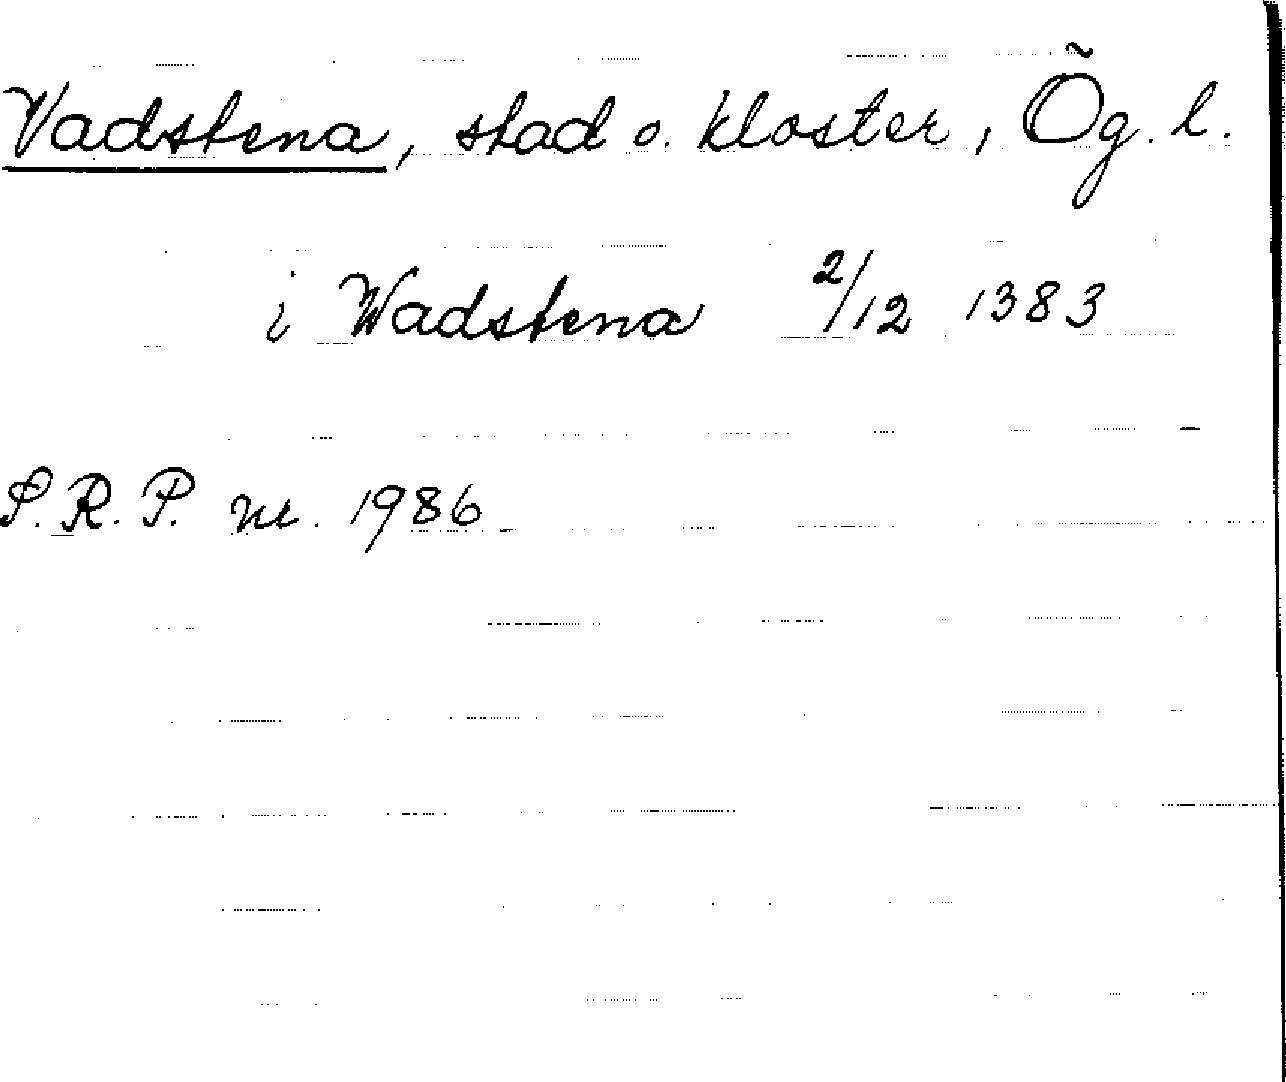 Vadstena, stad o. kloster, Ög. l.
i Wadstena 2/12 1383
S.R.P. nr. 1986